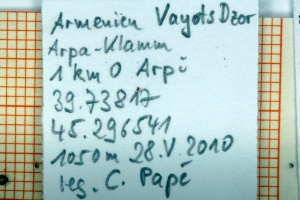 Armenien Vayots Dzor
Arpa-Klamm
1 km O Arpi
39.73817
45.296541
1050m 28.V.2010
leg. C. Papé